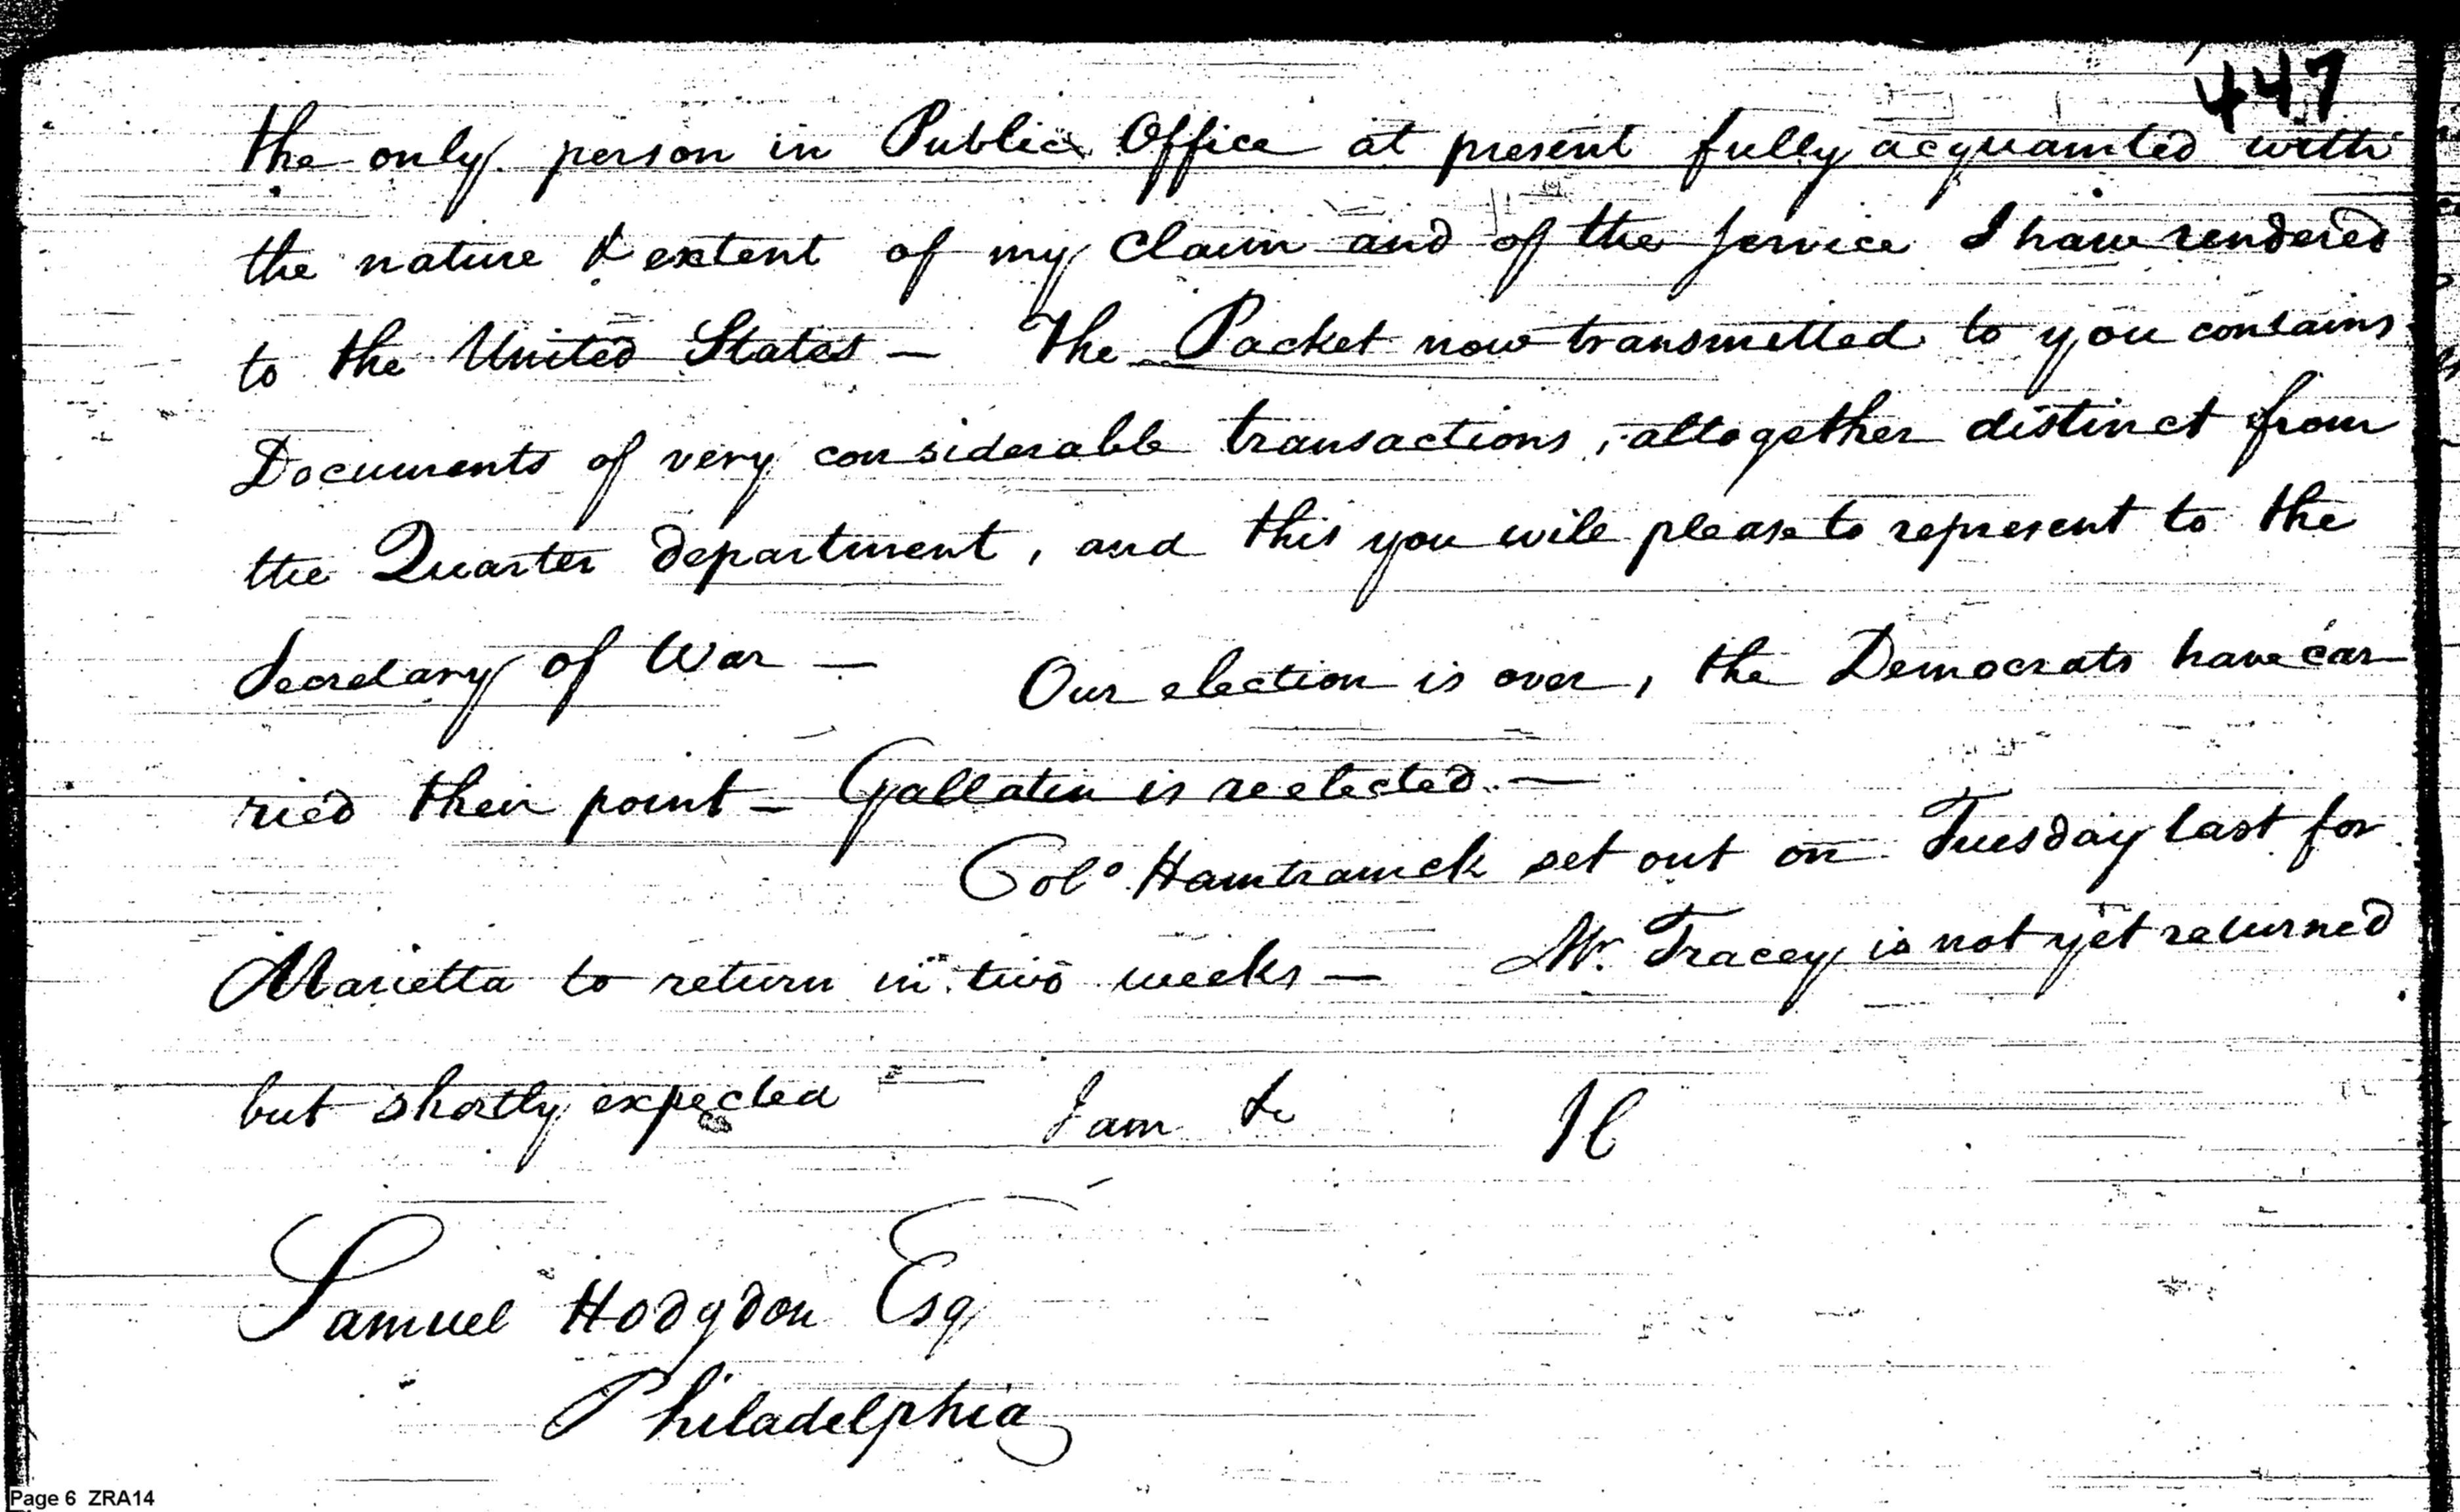 447
the only person in Public Office at present fully acquainted with
the nature & extent of my Claim and of the Service I have rendered
to the United States — The Packet now transmitted to you contains
Documents of very considerable transactions, altogether distinct from
the Quarter department, and this you will please to represent to the
Secretary of War — Our election is over, the Democrats have car
ried their point — Gallatin is reelected. —
Colo Hamtramck set out on Tuesday last for
Marietta to return in two weeks — Mr. Tracey is not yet returned
but shortly expected I am &c
Samuel Hodgdon Esq
Philadelphia
Page 6 ZRA14